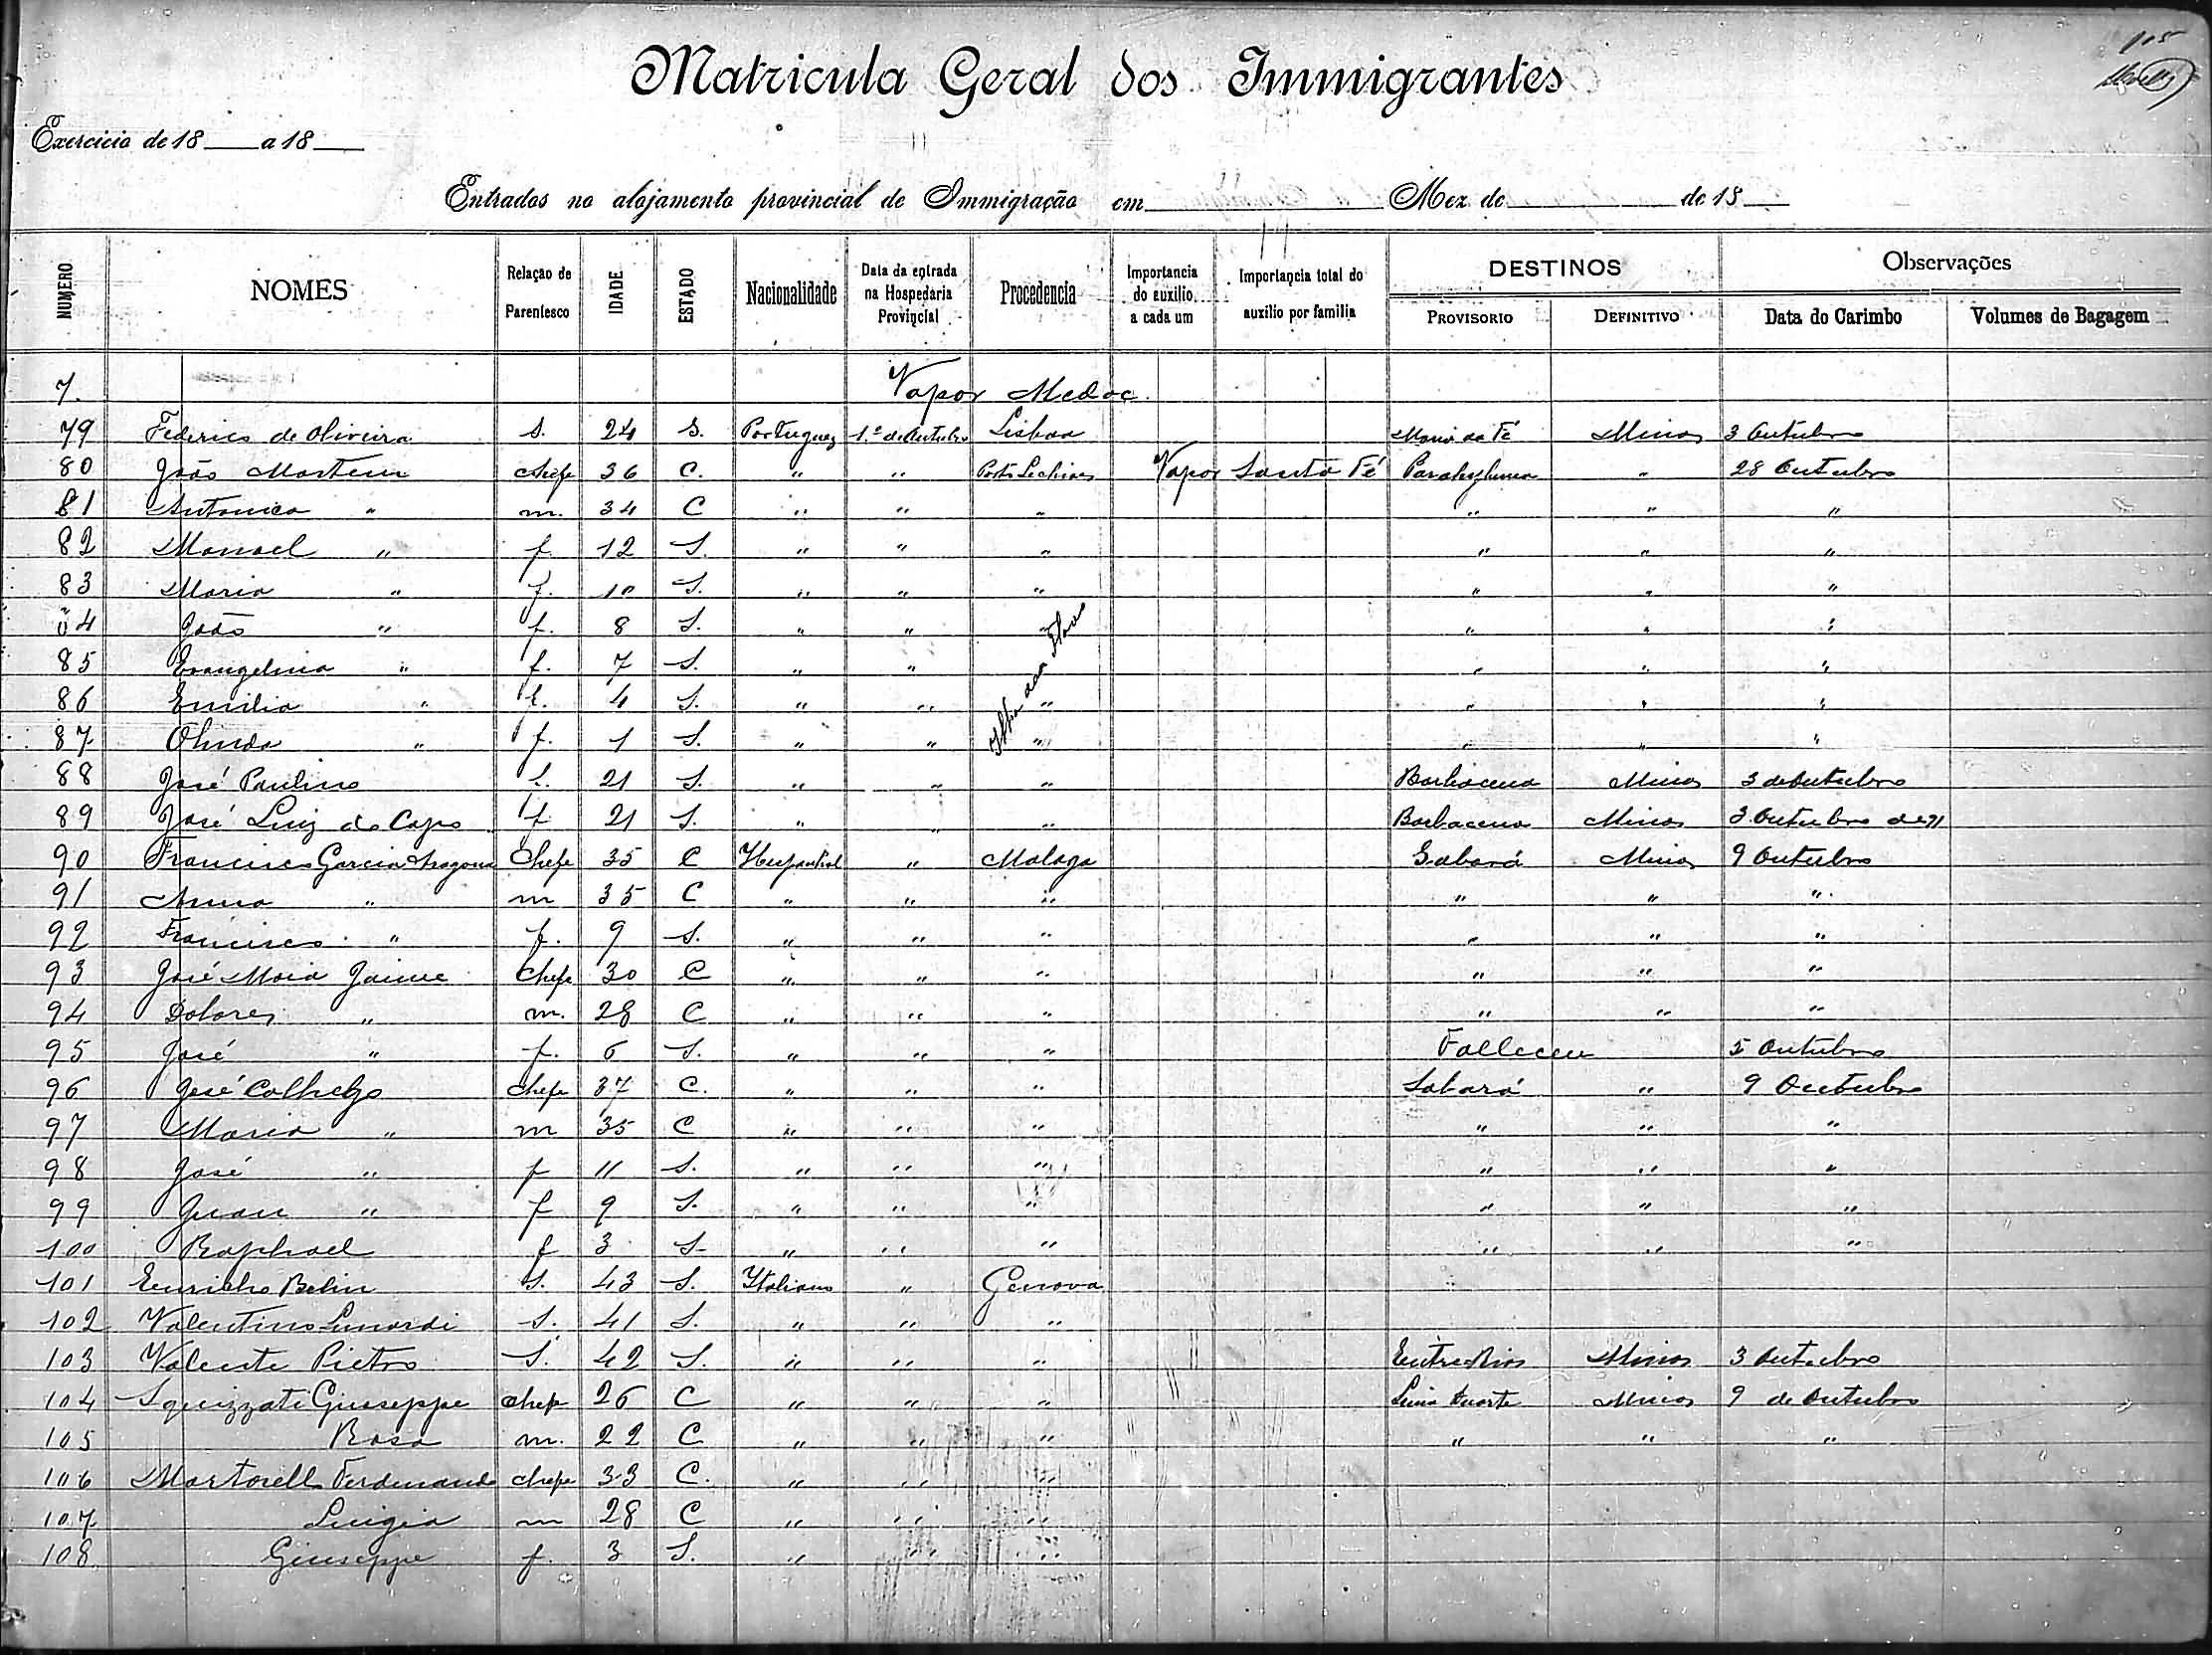 105
Matricula Geral dos Immigrantes
Exercicio de 18 a 18
Entrados no alojamento provincial de Immigração em Mez de de 18
NUMERO NOMES Relação de Parentesco IDADE ESTADO Nacionalidade Data da entrada na Hospedaria Provincial Procedencia Importancia do auxilio a cada um Importancia total do auxilio por familia DESTINOS PROVISORIO DEFINITIVO Observações Data do Carimbo Volumes de Bagagem
7. Vapor Medoc
79 Federico de Oliveira S. 24 S. Portuguez 1.º de Outubro Lisboa Maria da Fé Minas 3 Outubro
80 João Martem chefe 36 C. " " Vapor Santa Fé " 28 Outubro
81 Antonica " m. 34 C " " " " " "
82 Manoel " f 12 S. " " " " " "
83 Maria " f. 10 S. " " " " " "
84 João " f. 8 S. " " " " " "
85 Evangelina " f. 7 S. " " " " "
86 Emilia " f. 4 S. " " " " " "
87 Olinda " f. 1 S. " " " " " "
88 José Paulino S. 21 S. " " " Barbacena Minas 3 de Outubro
89 José Luiz do Capo f 21 S. " " " Barbacena Minas 3 Outubro de 91
90 Francisco Garcia Aragona Chefe 35 C Hespanhol " Malaga Sabará Minas 9 Outubro
91 Anna " m 35 C " " " " " "
92 Francisco " f. 9 S. " " " " " "
93 José Maria Jaime Chefe 30 C " " " " " "
94 Dolores " m. 28 C " " " " " "
95 José " f. 6 S. " " " Falleceu 5 Outubro
96 José Calhelzo Chefe 37 C. " " " Sabará " 9 Outubro
97 Maria " m 35 C " " " " " "
98 José " f 11 S. " " " " " "
99 Juan " f 9 S. " " " " " "
100 Raphael f 3 S " " " " " "
101 Enricho Belin S. 43 S. Italiano " Genova
102 Valentino Lunardi S. 41 S. " " "
103 Valente Pietro S. 42 S. " " " Entre Rios Minas 3 Outubro
104 Squizzati Giuseppe chefe 26 C " " " Lima Duarte Minas 9 de Outubro
105 Rosa m. 22 C " " " " " "
106 Martorell Ferdinando chefe 33 C. " " "
107 Luigia m 28 C " " "
108 Giuseppe f. 3 S. " " "